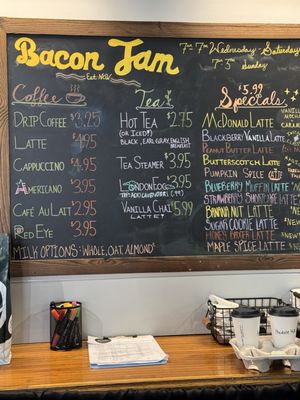 Bacon Jam
7am-7pm Wednesday - Saturday
7am-3pm Sunday
Coffee
Drip Coffee $3.25
Latte $4.95
Cappuccino $4.95
Americano $3.95
Café Au Lait $2.95
Red Eye $3.95
Milk Options: Whole, Oat, Almond
Tea
Hot Tea $2.75
(or Iced!)
Black, Earl Gray, English Breakfast
Tea Steamer $3.95
London Fog $3.95
Vanilla Chai $5.99
Latte
$5.99
Specials
McDonald Latte
Blackberry Vanilla Latte
Peanut Butter Latte
Butterscotch Latte
Pumpkin Spice
Blueberry Muffin Latte
Strawberry Shortcake Latte
Banana Nut Latte
Sugar Cookie Latte
Honey Latte
Maple Spice Latte